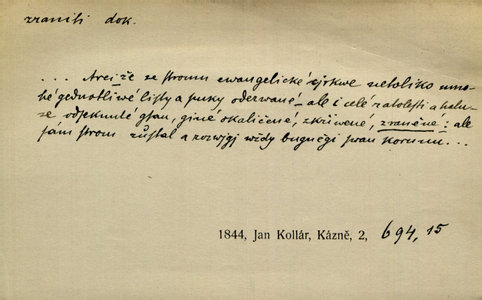 zraniti dok.
... Arci že ze stromu ewangelické cjrkwe netoliko mno-
hé gednotliwé listy a puky oderwané – ale i celé ratolesti a halu-
ze odseknuté gsau, giné okaličené, zkřiwené, zraněné: ale
sám strom zůstal a rozwjgj wždy bugněgi swau korunu...
1844, Jan Kollár, Kázně, 2, 694, 15